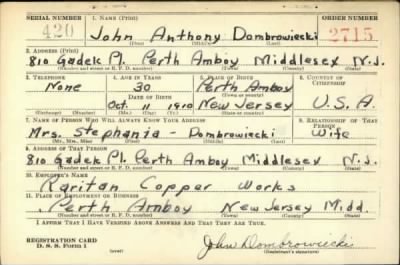 SERIAL NUMBER 1. NAME (Print) ORDER NUMBER
420 John Anthony Dombrowiecki 2715
(First) (Middle) (Last)
2. ADDRESS (Print)
810 Gadek Pl. Perth Amboy Middlesex N.J.
(Number and street or R. F. D. number) (Town) (County) (State)
3. TELEPHONE 4. AGE IN YEARS 5. PLACE OF BIRTH 6. COUNTRY OF CITIZENSHIP
None 30 Perth Amboy
DATE OF BIRTH (Town or county)
Oct. 11 1910 New Jersey U.S.A.
(Exchange) (Number) (Mo.) (Day) (Yr.) (State or country)
7. NAME OF PERSON WHO WILL ALWAYS KNOW YOUR ADDRESS 8. RELATIONSHIP OF THAT PERSON
Mrs. Stephania - Dombrowiecki Wife
(Mr., Mrs., Miss) (First) (Middle) (Last)
9. ADDRESS OF THAT PERSON
810 Gadek Pl. Perth Amboy Middlesex N.J.
(Number and street or R. F. D. number) (Town) (County) (State)
10. EMPLOYER'S NAME
Raritan Copper Works
11. PLACE OF EMPLOYMENT OR BUSINESS
Perth Amboy New Jersey Midd.
(Number and street or R. F. D. number) (Town) (County) (State)
I AFFIRM THAT I HAVE VERIFIED ABOVE ANSWERS AND THAT THEY ARE TRUE.
REGISTRATION CARD
D. S. S. FORM 1 (over) John Dombrowiecki
(Registrant's signature)